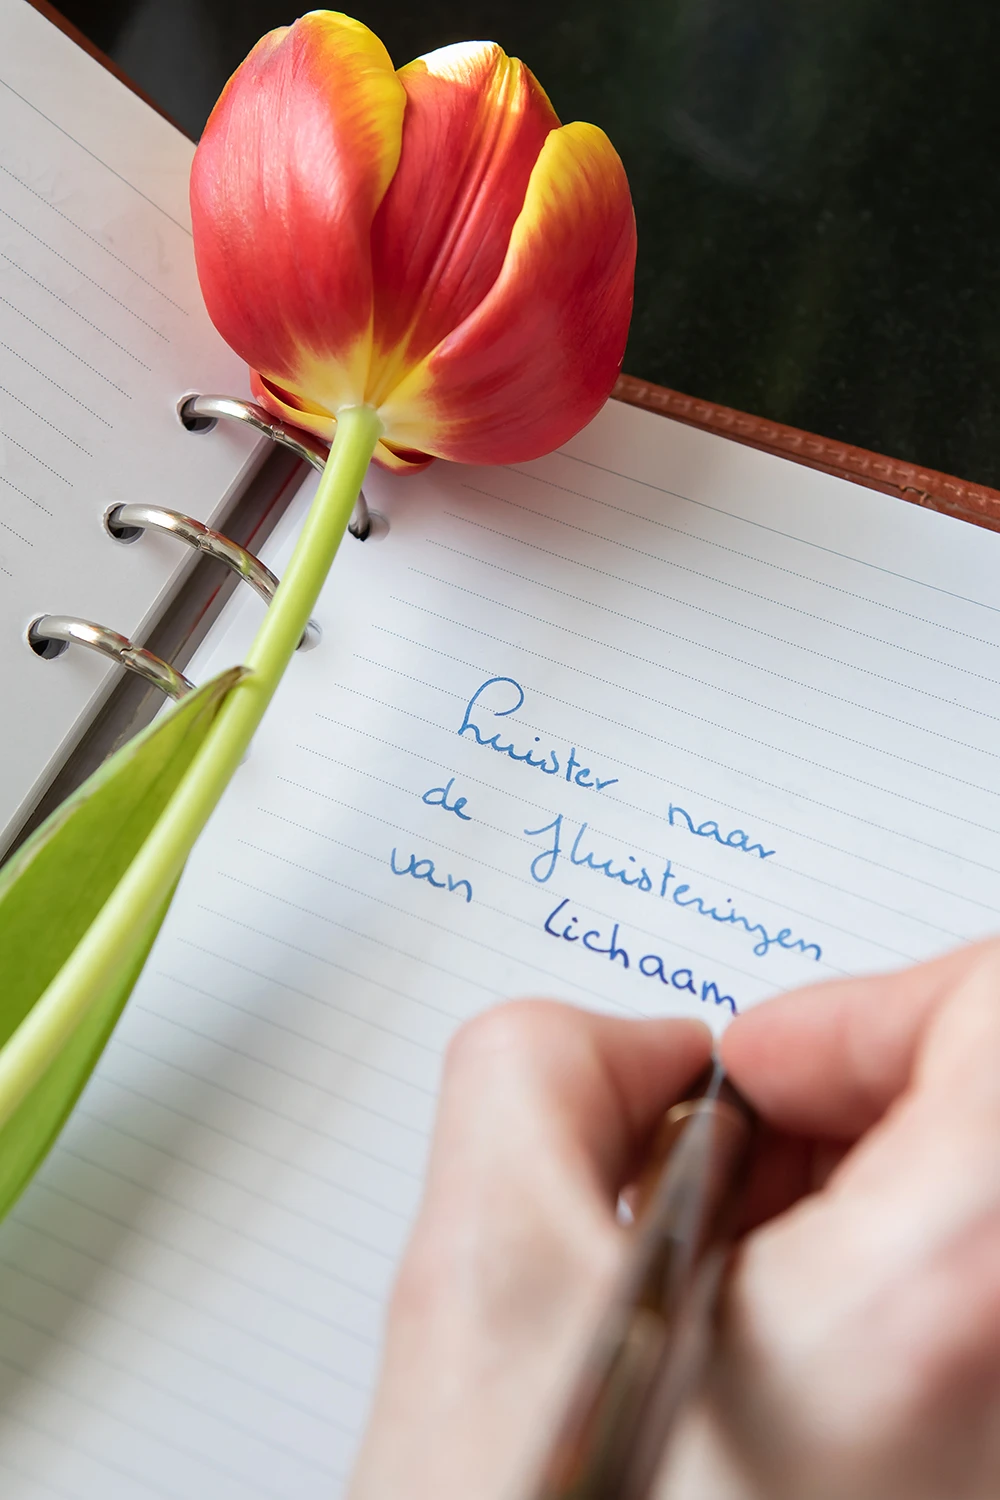 huister naar
de fluisteringen
van lichaam